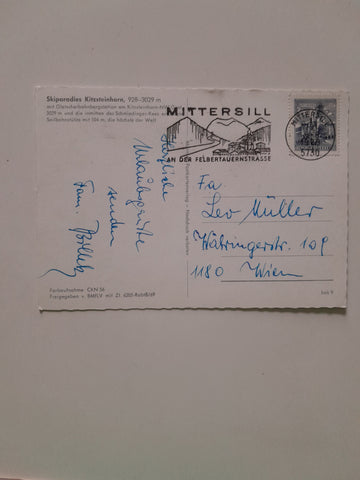 Skiparadies Kitzsteinhorn, 928-3029 m
mit Gletscherbahnbergstation am Kitzsteinhorn
3029 m und die inmitten des Schmiedinger-Kees
Seilbahnstütze mit 104 m, die höchste der Welt
MITTERSILL
AN DER FELBERTAUERNSTRASSE
MITTERSILL
5730
Herzliche
Urlaubsgrüße
senden
Fam.
Fa.
Leo Müller
Währingerstr. 109
1180 Wien
Farbaufnahme CKN 56
Freigegeben v. BMfLV mit Zl.